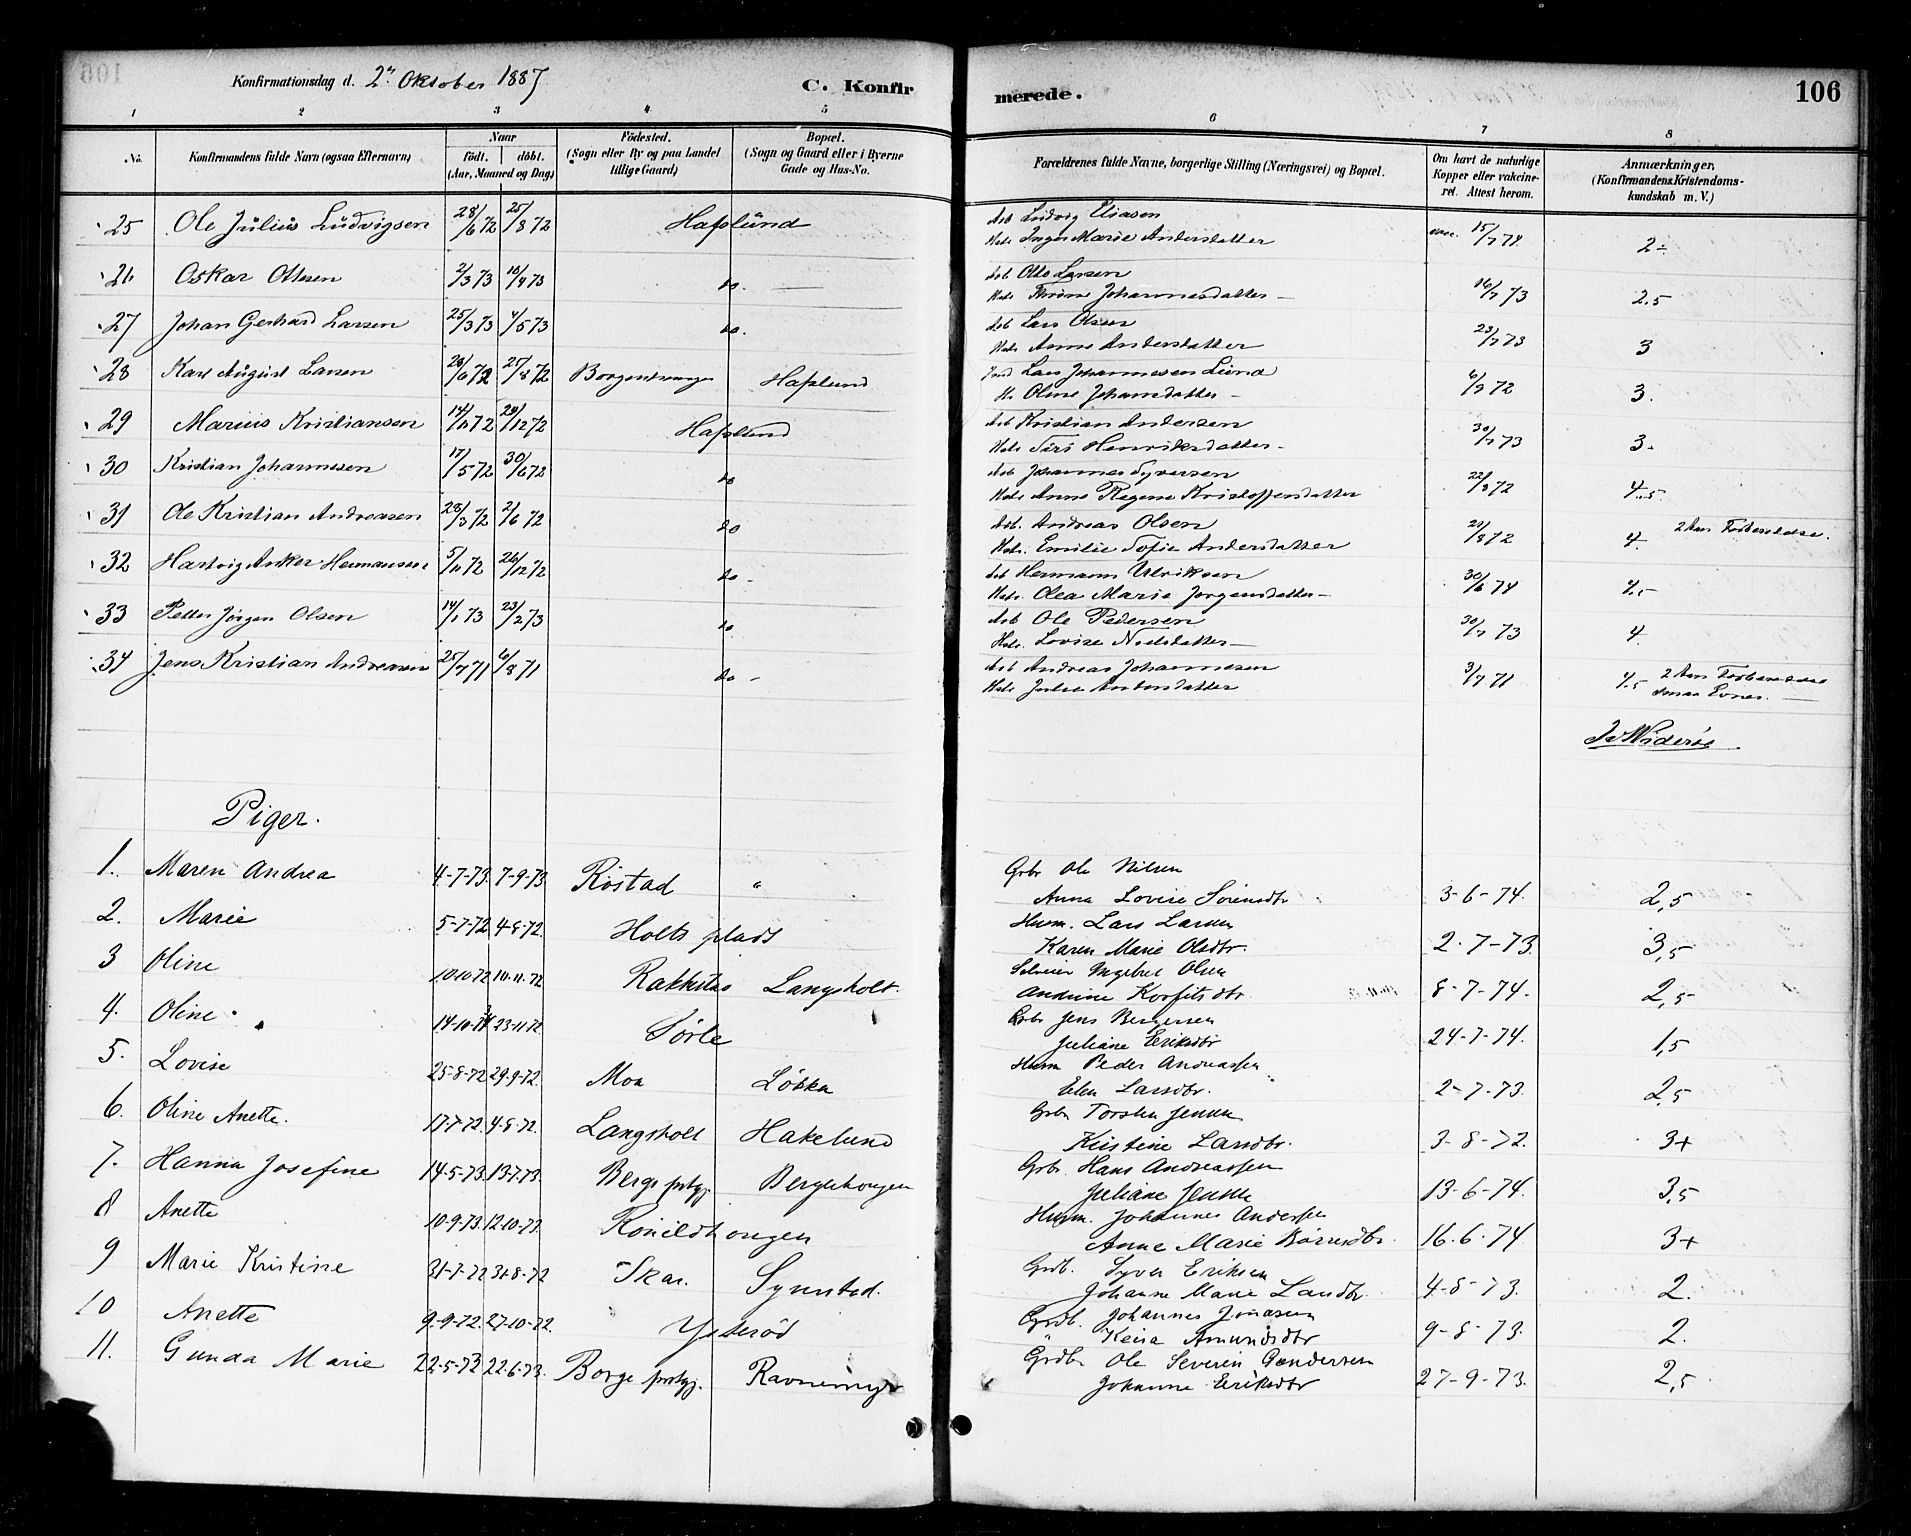 Konfirmationsdag d. 2den Oktober 1887
C. Konfir
merede.
106
1 2 3 4 5 6 7 8
No.
Konfirmandens fulde Navn (ogsaa Efternavn)
Naar
födt. döbt.
(Aar, Maaned og Dag)
Födested.
(Sogn eller By og paa Landet tillige Gaard)
Bopæl.
(Sogn og Gaard eller i Byerne Gade og Hus-No.
Forældrenes fulde Navne, borgerlige Stilling (Næringsvei) og Bopæl.
Om havt de naturlige Kopper eller vakcineret. Attest herom.
Anmærkninger, (Konfirmandens Kristendomskundskab m. V.)
25 Ole Julius Ludvigsen 28/6 72 25/8 72 Hafslund Arb Ludvig Eliasen 15/7 74 2÷
Hstr Inger Marie Andersdatter
26 Oskar Ottesen 2/3 73 18/4 73 do. Arb Otto Larsen 16/7 73 2.5
Hstr Thrine Johannesdatter
27 Johan Gerhard Larsen 25/3 73 4/5 73 do. Arb Lars Olsen 23/7 73 3
Hstr Anne Andersdatter
28 Karl August Larsen 28/6 72 25/8 72 Hafslund Lars Johannesen Lund 6/9 72 3.
H. Oline Johansdatter
29 Marius Kristiansen 14/11 72 29/12 72 Hafslund Arb Kristian Andersen 30/7 73 3.
Hstr Siri Henriksdatter
30 Kristian Johannesen 17/5 72 30/6 72 do Arb Johannes Syversen 22/8 72 4.5
Hstr Anne Regine Kristoffersdatter
31 Ole Kristian Andreasen 28/3 72 2/6 72 do Arb. Andreas Olsen 21/8 72 4. 2 Aars Forberedelse.
Hstr. Emilie Sofie Andersdatter
32 Hartvig Anker Hermansen 5/11 72 26/12 72 do Arb Hermann Ulriksen 30/6 74 4.5
Hstr. Olea Marie Jørgensdatter
33 Petter Jörgen Olsen 14/1 73 23/2 73 do Arb Ole Pedersen 30/7 73 4.
Hstr. Lovise Nielsdatter
34 Jens Kristian Andreasen 25/7 71 6/8 71 do Arb Andreas Johannesen 3/7 71 4.5 2 Aars Forberedelse
Hstr Julie Andersdatter smaa Evner.
J. Widerøe
Piger.
1. Maren Andrea 4-7-73. 7-9-73 Röstad " Grbr Ole Nilsen
Anna Lovise Sörensdtr 3-6-74. 2,5
2. Marie 5-7-72 4-8-72. Holts plads Husm. Lars Larsen
Karen Marie Olsdtr. 2-7-73 3,5
3 Oline 10-10-72 10-11-72 Rakkstad Langsholt. Selveier Ingebret Olsen
Andrine Korfitsdtr. 8-7-74. 2,5
4. Oline 14-10-72 23-11-72 Sörle Grbr Jens Bergersen
Juliane Eriksdtr 24-7-74. 1,5
5. Lovise 25-8-72 29-9-72. Moa Løkka Husm Peder Andreassen
Elen Larsdtr. 2-7-73. 2,5
6. Oline Anette. 17-7-72. 4-8-72. Langsholt Hakelund Grbr Torsten Jensen
Kristine Larsdtr. 3-8-72. 3+
7. Hanna Josefine 14-5-73. 13-7-73. Berge prstgj. Bergehougen Grbr. Hans Andreassen
Juliane Jensen 13-6-74. 3,5
8 Anette 10-9-73. 12-10-73. Ronildhougen Husm. Johannes Andersen
Anne Marie Børresdtr. 16-6-74. 3+
9 Marie Kristine 31-7-72 31-8-72 Skar. Synstad. Grdb. Syver Eriksen
Johanne Marie Larsdtr. 4-8-73. 2.
10 Anette 9-9-72. 27-10-72. Ysterød Grdb. Johannes Jonasen
Keisa Amundsdtr 9-8-73. 2.
11. Gunda Marie 22-5-73 22-6-73. Borge prstgj. Ravnemyr Grdbr Ole Severin Gundersen
Johanne Eriksdtr 27-9-73. 2,5